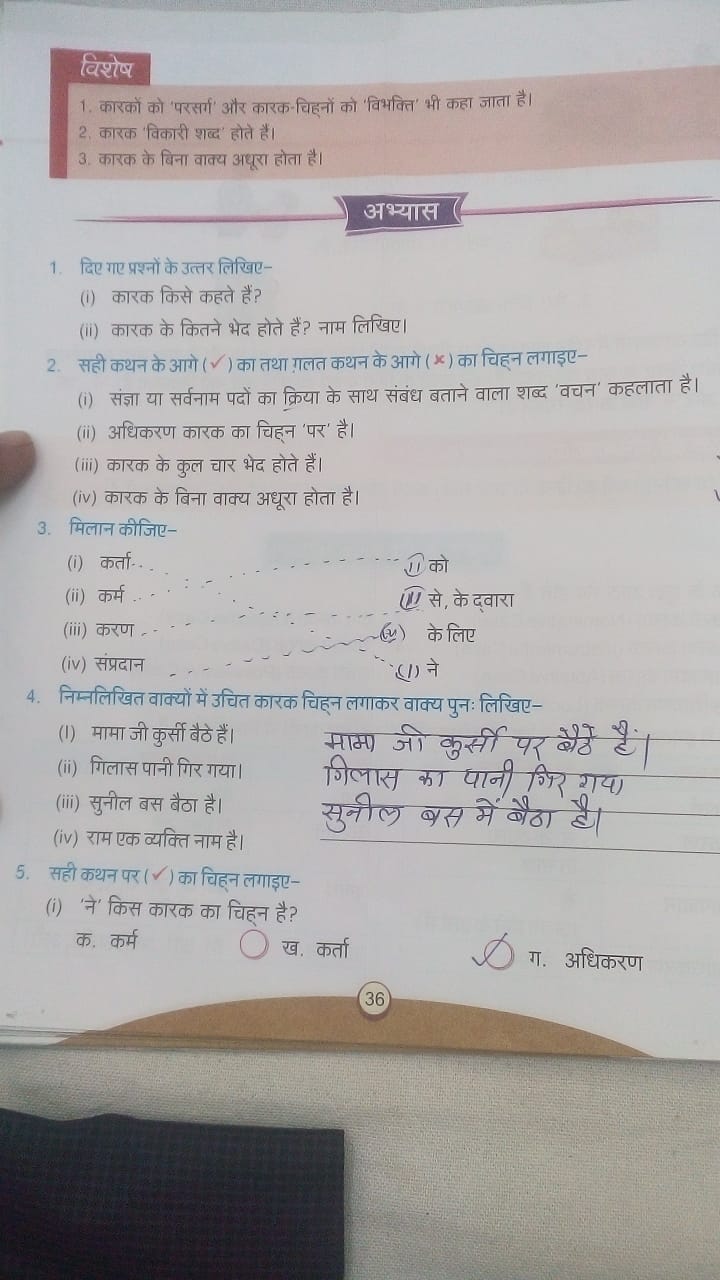 विशेष
1. कारकों को 'परसर्ग' और कारक-चिह्नों को 'विभक्ति' भी कहा जाता है।
2. कारक 'विकारी शब्द' होते हैं।
3. कारक के बिना वाक्य अधूरा होता है।
अभ्यास
1. दिए गए प्रश्नों के उत्तर लिखिए–
(i) कारक किसे कहते हैं?
(ii) कारक के कितने भेद होते हैं? नाम लिखिए।
2. सही कथन के आगे (✓) का तथा ग़लत कथन के आगे (×) का चिह्न लगाइए–
(i) संज्ञा या सर्वनाम पदों का क्रिया के साथ संबंध बताने वाला शब्द 'वचन' कहलाता है।
(ii) अधिकरण कारक का चिह्न 'पर' है।
(iii) कारक के कुल चार भेद होते हैं।
(iv) कारक के बिना वाक्य अधूरा होता है।
3. मिलान कीजिए–
(i) कर्ता (II) को
(ii) कर्म (III) से, के द्वारा
(iii) करण (iv) के लिए
(iv) संप्रदान (I) ने
4. निम्नलिखित वाक्यों में उचित कारक चिह्न लगाकर वाक्य पुनः लिखिए–
(I) मामा जी कुर्सी बैठे हैं। मामा जी कुर्सी पर बैठे हैं।
(ii) गिलास पानी गिर गया। गिलास का पानी गिर गया
(iii) सुनील बस बैठा है। सुनील बस में बैठा है।
(iv) राम एक व्यक्ति नाम है।
5. सही कथन पर (✓) का चिह्न लगाइए–
(i) 'ने' किस कारक का चिह्न है?
क. कर्म ख. कर्ता ✓ ग. अधिकरण
36